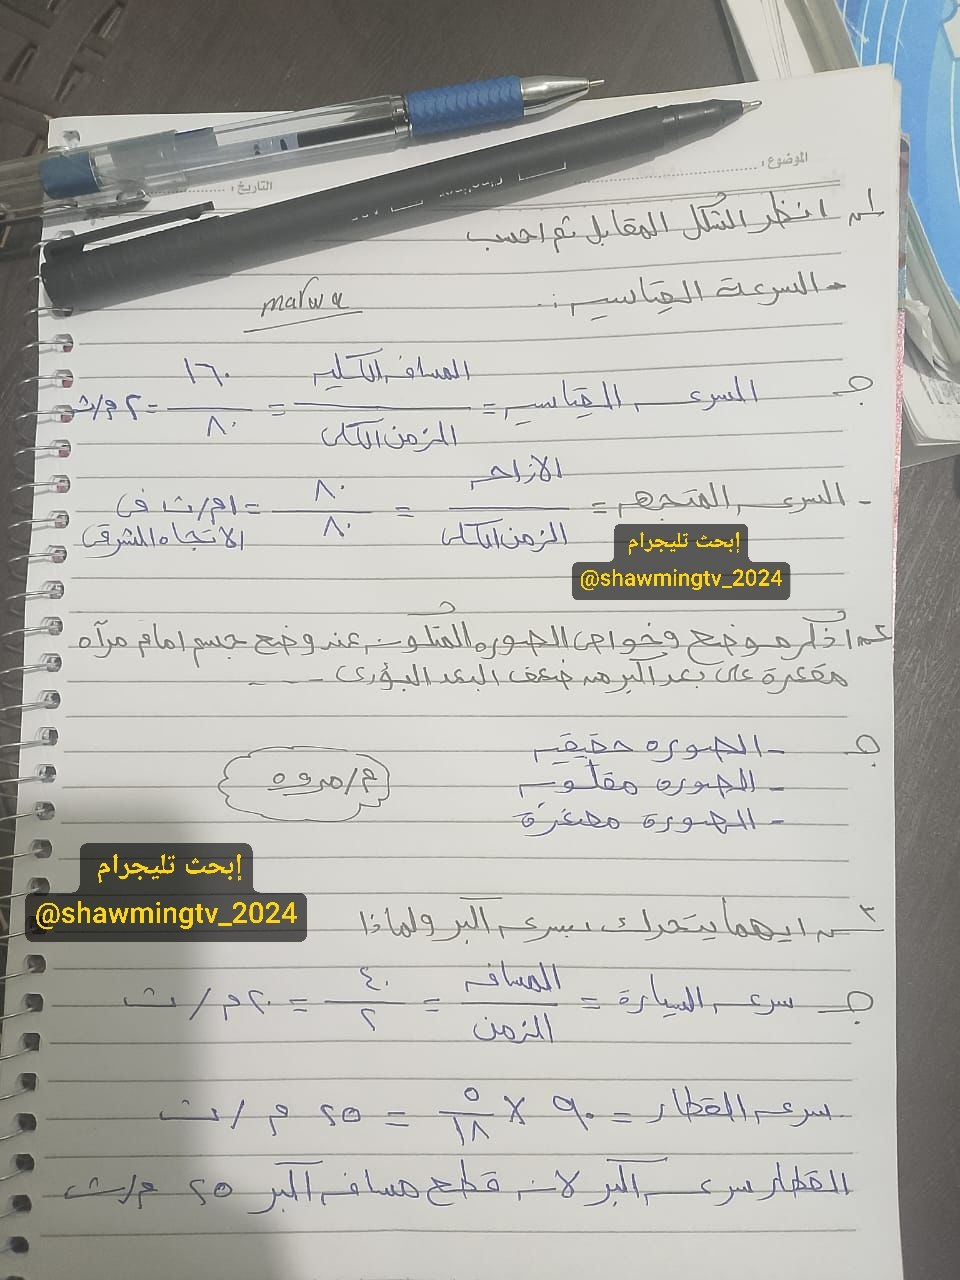 الموضوع :
التاريخ :
س١ انظر الشكل المقابل ثم احسب
- السرعة القياسيه :
marwa
جـ السرعه القياسيه = المسافه الكليه / الزمن الكلى = ١٦٠ / ٨٠ = ٢ م/ث
- السرعه المتجهه = الازاحه / الزمن الكلى = ٨٠ / ٨٠ = ١ م/ث فى
الاتجاه الشرقى
إبحث تليجرام
@shawmingtv_2024
س٢ اذكر موضع وخواص الصوره المتكونه عند وضع جسم امام مرآه
مقعرة على بعد اكبر من ضعف البعد البؤرى - - -
جـ - الصوره حقيقيه
- الصوره مقلوبه
- الصورة مصغرة
م/مروه
إبحث تليجرام
@shawmingtv_2024
س٣ ايهما يتحرك بسرعه اكبر ولماذا
جـ سرعه السيارة = المسافه / الزمن = ٤٠ / ٢ = ٢٠ م/ث
سرعه القطار = ٩٠ × ٥ / ١٨ = ٢٥ م/ث
القطار سرعه اكبر لانه قطع مسافه اكبر ٢٥ م/ث